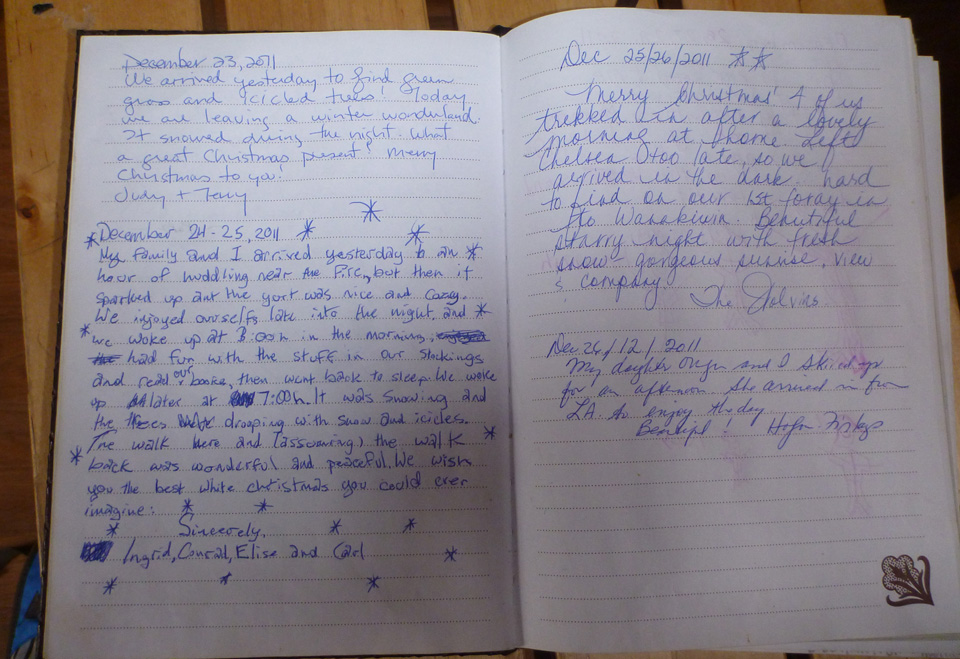 December 23, 2011
We arrived yesterday to find green
grass and icicled trees! Today
we are leaving a winter wonderland.
It snowed during the night. What
a great Christmas present! Merry
Christmas to you!
Judy + Terry
December 24-25, 2011
My family and I arrived yesterday to an
hour of huddling near the fire, but then it
sparked up ant the yort was nice and cozey.
We injoyed ourselfs late into the night, and
we woke up at 3:00h in the morning,
had fun with the stuff in our stockings
and read our books, then went back to sleep. We woke
up later at 7:00h. It was snowing and
the trees drooping with snow and icicles.
The walk here and (assuming) the walk
back was wonderful and peaceful. We wish
you the best white christmas you could ever
imagine:
Sincerely,
Ingrid, Conrad, Elise and Carl
Dec 25/26/2011
Merry Christmas! 4 of us
trekked in after a lovely
morning at home. Left
Chelsea too late, so we
arrived in the dark. hard
to find on our 1st foray in
to Wanakiwin. Beautiful
starry night with fresh
snow - gorgeous sunrise, view
& company
The
Dec 26/12/2011
My daughter and I skied up
for an afternoon. She arrived in from
LA. to enjoy the day.
Beautiful!